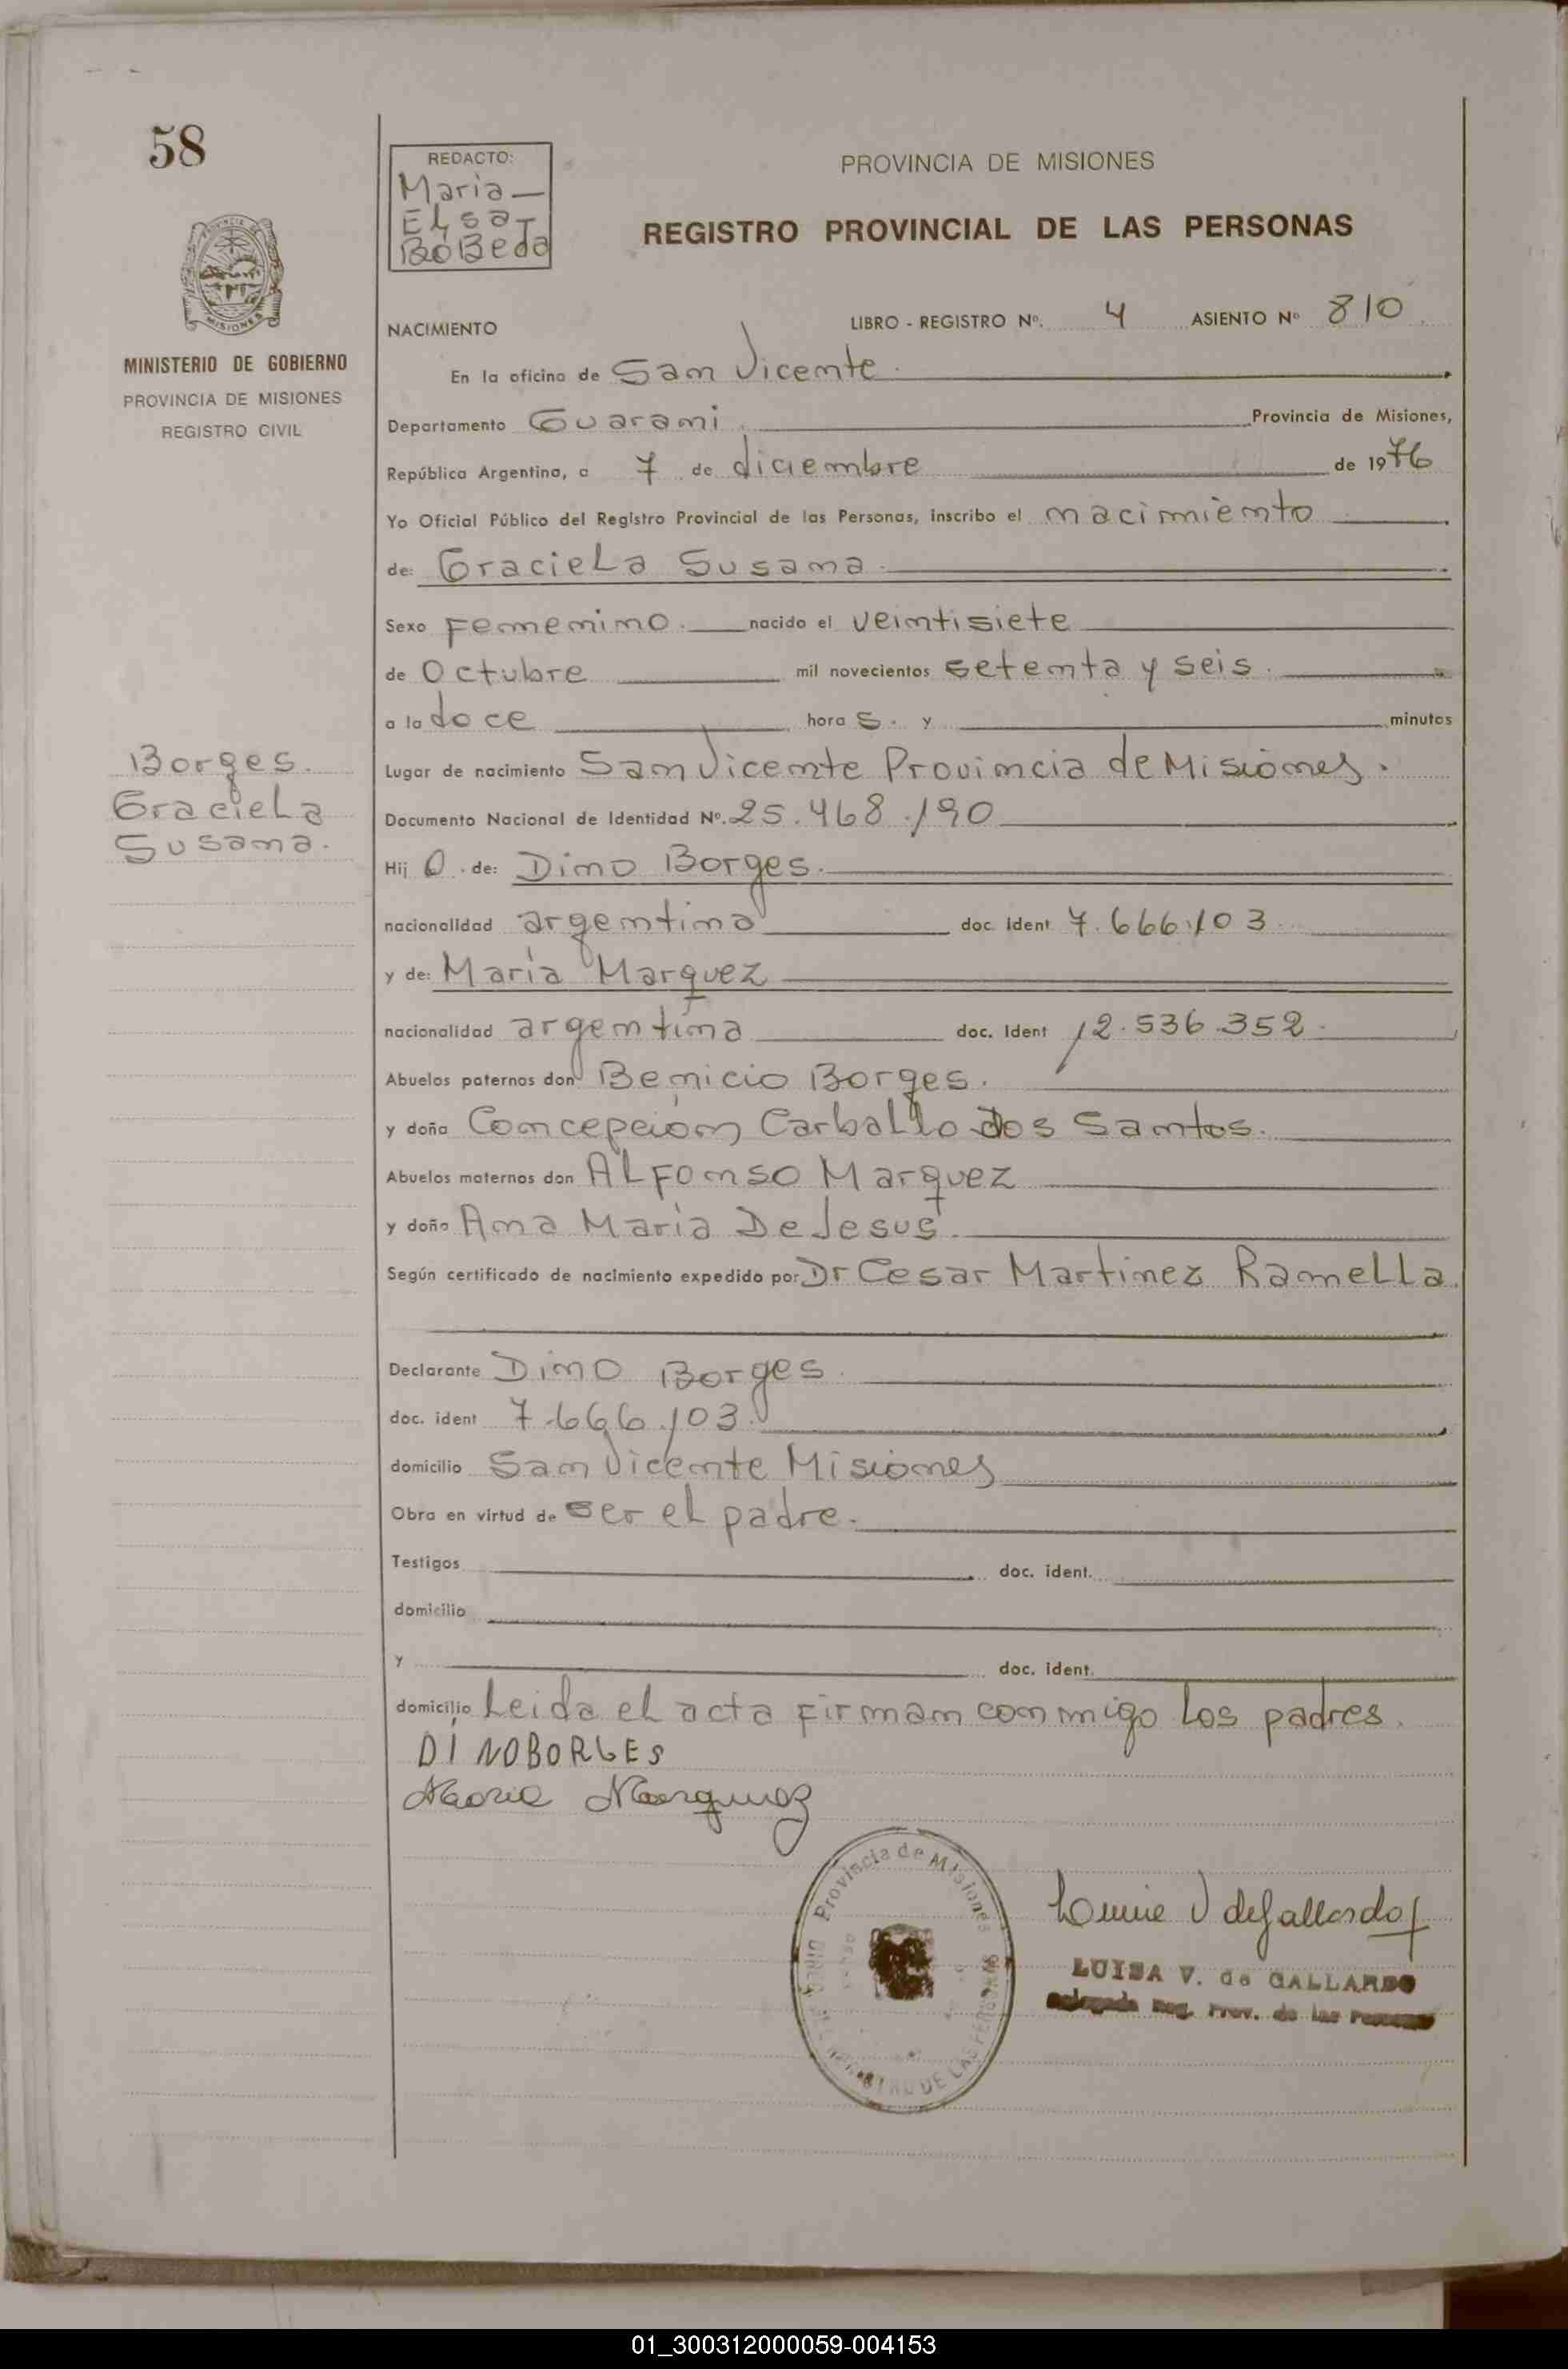 58
REDACTO:
Maria
Elsa
BoBeda
PROVINCIA DE MISIONES
REGISTRO PROVINCIAL DE LAS PERSONAS
MISIONES
MINISTERIO DE GOBIERNO
PROVINCIA DE MISIONES
REGISTRO CIVIL
NACIMIENTO LIBRO - REGISTRO Nº. 4 ASIENTO Nº 810
En la oficina de San Vicente.
Departamento Guarani. Provincia de Misiones,
República Argentina, a 7 de diciembre de 1976
Yo Oficial Público del Registro Provincial de las Personas, inscribo el nacimiento
de: Graciela Susana.
Sexo Femenino. nacido el veintisiete
de Octubre mil novecientos setenta y seis.
a la doce hora s. y minutos
Borges.
Graciela
Susana.
Lugar de nacimiento San Vicente Provincia de Misiones.
Documento Nacional de Identidad Nº. 25.468.190
Hij a. de: Dino Borges.
nacionalidad argentina doc. Ident 7.666.103
y de: María Marquez
nacionalidad argentina doc. Ident 12.536.352.
Abuelos paternos don Benicio Borges.
y doña Concepción Carballo dos Santos.
Abuelos maternos don Alfonso Marquez
y doña Ana María De Jesus.
Según certificado de nacimiento expedido por Dr Cesar Martinez Ramella.
Declarante Dino Borges.
doc. ident 7.666.103.
domicilio San Vicente Misiones
Obra en virtud de ser el padre.
Testigos doc. ident.
domicilio
y doc. ident.
domicilio Leida el acta firman conmigo los padres.
DINOBORGES
Maria Marquez
Provincia de Misiones
LUISA V. de GALLARDO
Delegada Reg. Prov. de las Personas
01_300312000059-004153